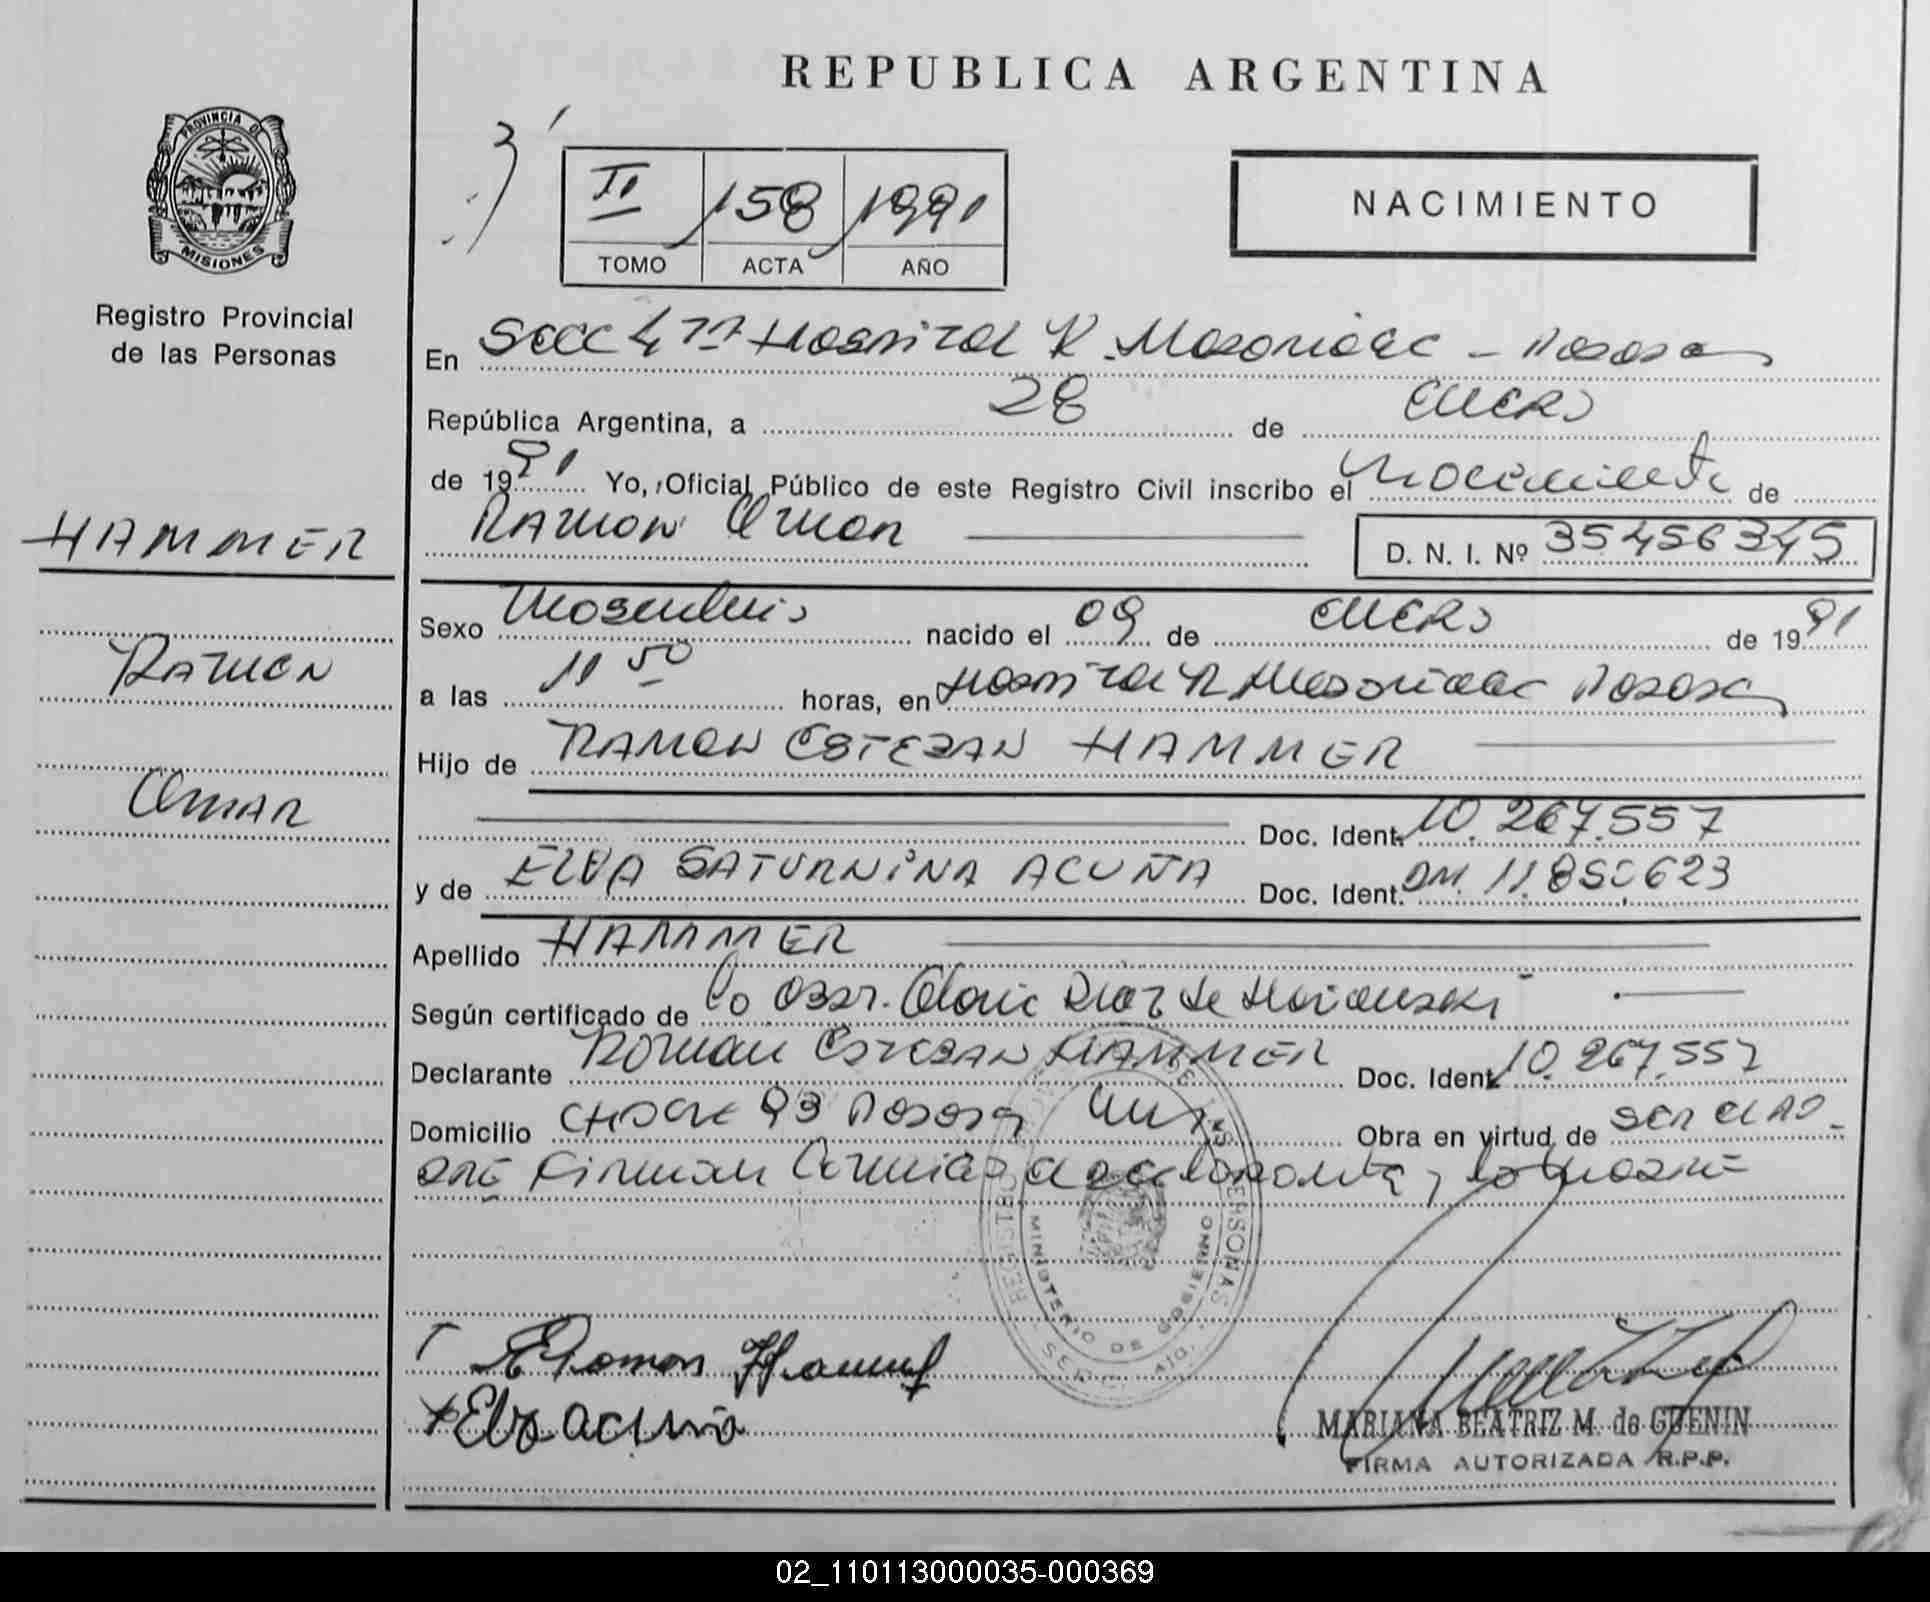 REPUBLICA ARGENTINA
PROVINCIA DE
MISIONES
Registro Provincial
de las Personas
II 158 1991
TOMO ACTA AÑO
NACIMIENTO
En Secc 4ta Hospital R. Madariaga - Posadas
República Argentina, a 28 de Enero
de 1991 Yo, Oficial Público de este Registro Civil inscribo el nacimiento de
Ramon Omar D. N. I. Nº 35456345
HAMMER
Ramon
Omar
Sexo Masculino nacido el 09 de Enero de 1991
a las 11 50 horas, en Hospital R Madariaga Posadas
Hijo de RAMON ESTEBAN HAMMER
Doc. Ident. 10.267.557
y de ELVA SATURNINA ACUÑA Doc. Ident. 11.850623
Apellido HAMMER
Según certificado de La Obst. Diaz de
Declarante Roman Esteban HAMMER Doc. Ident. 10.267.557
Domicilio 93 Posadas Mnes Obra en virtud de ser el pa-
dre Firman Conmigo el declarante y la Madre
REGISTRO DE LAS PERSONAS
MINISTERIO DE GOBIERNO
Ramon Hammer
Elva acuña
MARIANA BEATRIZ M. de GUENIN
FIRMA AUTORIZADA R.P.P.
02_110113000035-000369